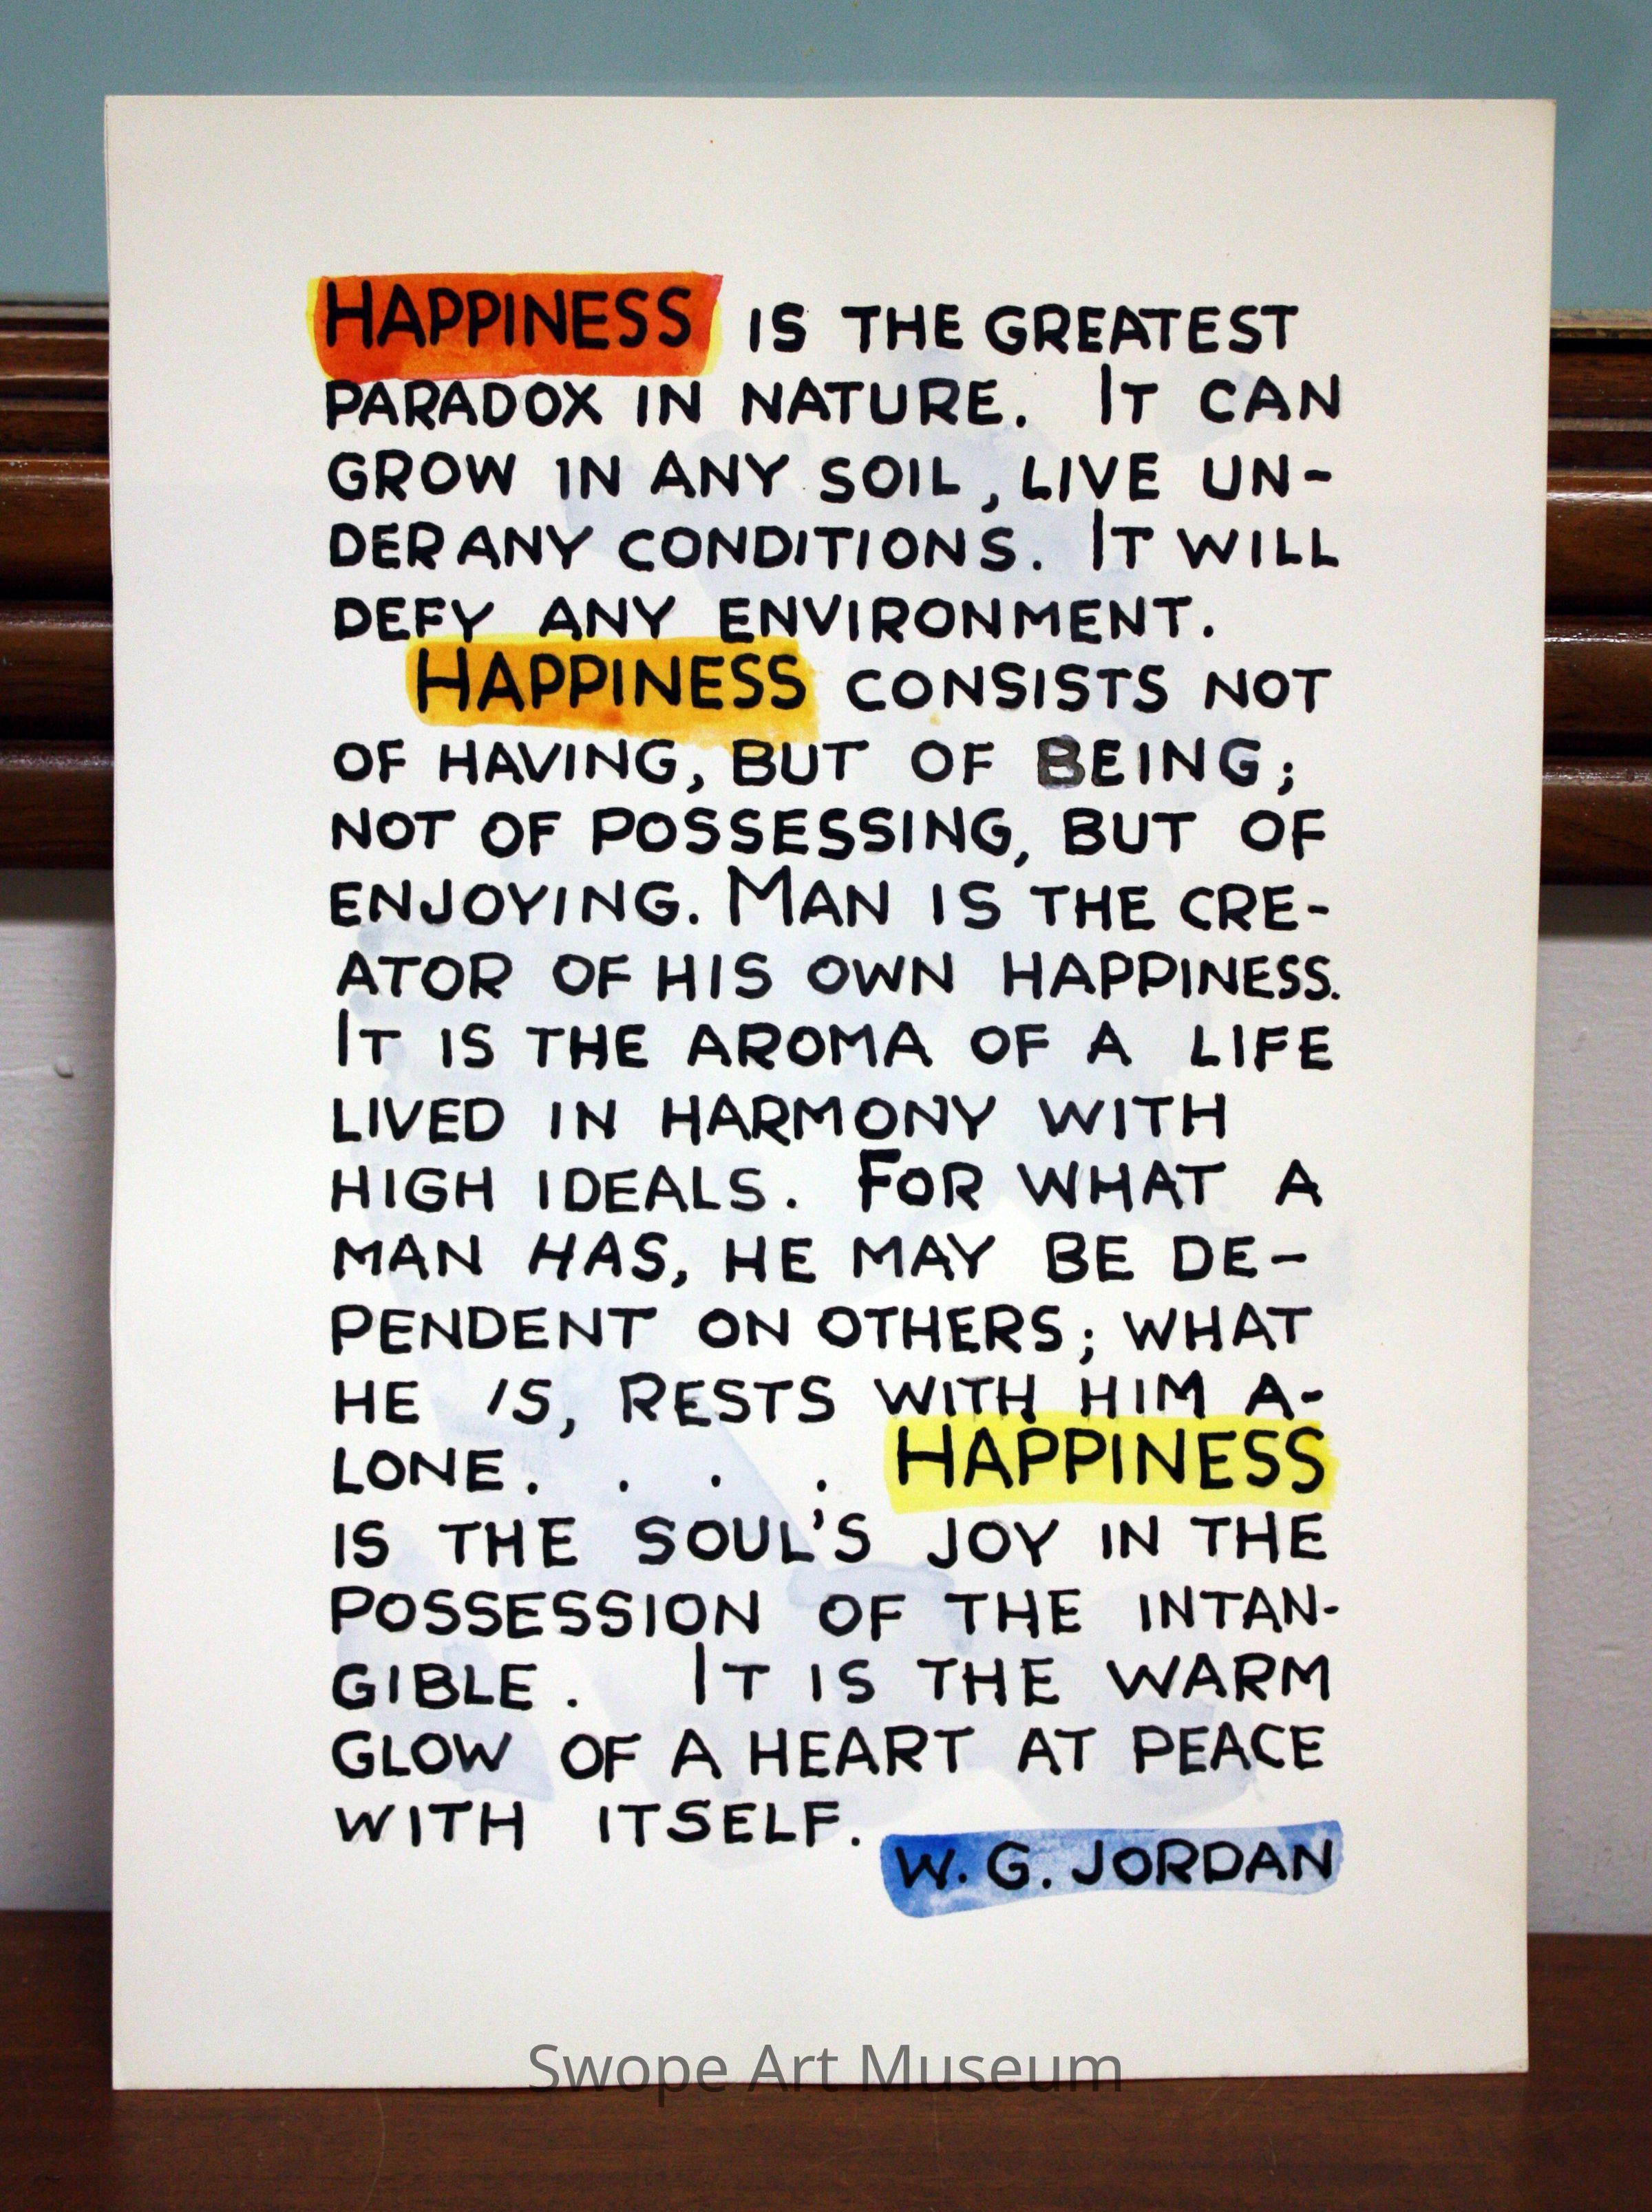 HAPPINESS IS THE GREATEST
PARADOX IN NATURE. IT CAN
GROW IN ANY SOIL, LIVE UN-
DER ANY CONDITIONS. IT WILL
DEFY ANY ENVIRONMENT.
HAPPINESS CONSISTS NOT
OF HAVING, BUT OF BEING;
NOT OF POSSESSING, BUT OF
ENJOYING. MAN IS THE CRE-
ATOR OF HIS OWN HAPPINESS.
IT IS THE AROMA OF A LIFE
LIVED IN HARMONY WITH
HIGH IDEALS. FOR WHAT A
MAN HAS, HE MAY BE DE-
PENDENT ON OTHERS; WHAT
HE IS, RESTS WITH HIM A-
LONE. . . . HAPPINESS
IS THE SOUL'S JOY IN THE
POSSESSION OF THE INTAN-
GIBLE. IT IS THE WARM
GLOW OF A HEART AT PEACE
WITH ITSELF.
W. G. JORDAN
Swope Art Museum